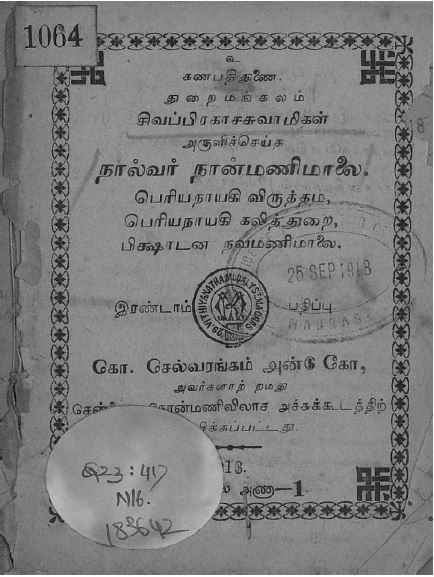 1064
உ
கணபதிதுணை.
துறைமங்கலம்
சிவப்பிரகாசசுவாமிகள்
அருளிச்செய்த
நால்வர் நான்மணிமாலை.
பெரியநாயகி விருத்தம்,
பெரியநாயகி கலித்துறை,
பிக்ஷாடன நவமணிமாலை.
25 SEP 1918
MADRAS
இரண்டாம் பதிப்பு
கோ. செல்வரங்கம் அண்டு கோ,
அவர்களாற் றமது
அச்சுக்கூடத்திற்
அணா—1.
Q23:417
N16.
183642